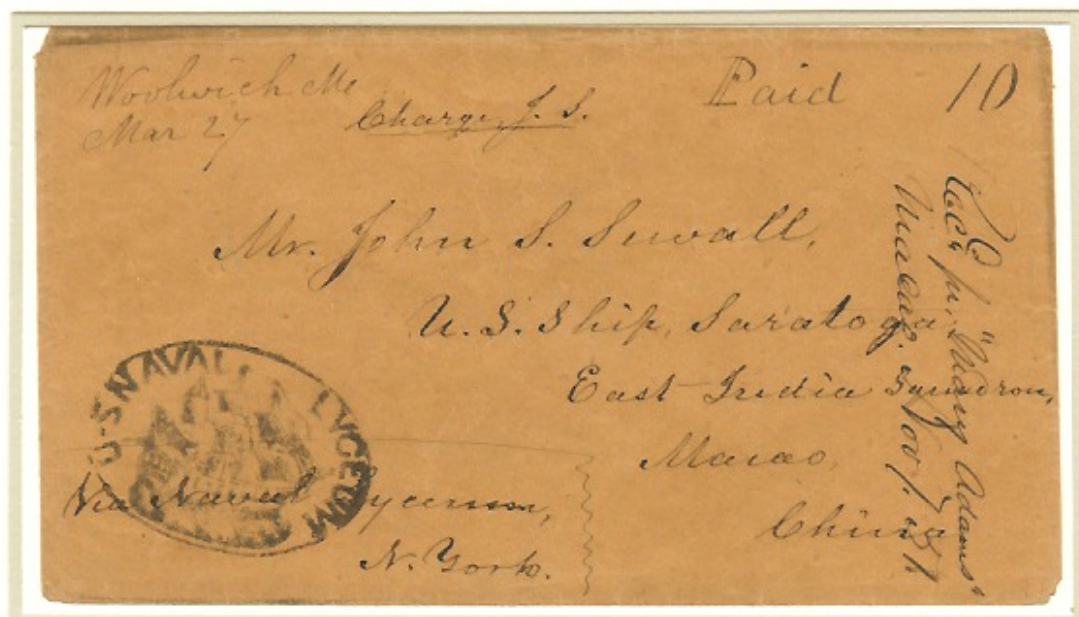 Woolwich Me
Mar 27
Charge, J. S.
Paid 10
Mr. John S. Sewall,
U.S. Ship, Saratoga,
East India Squadron,
Macao,
China
Via Naval Lyceum,
N. York.
U.S NAVAL LYCEUM
Rec'd pr. "Mary Adams"
Macao. Nov.